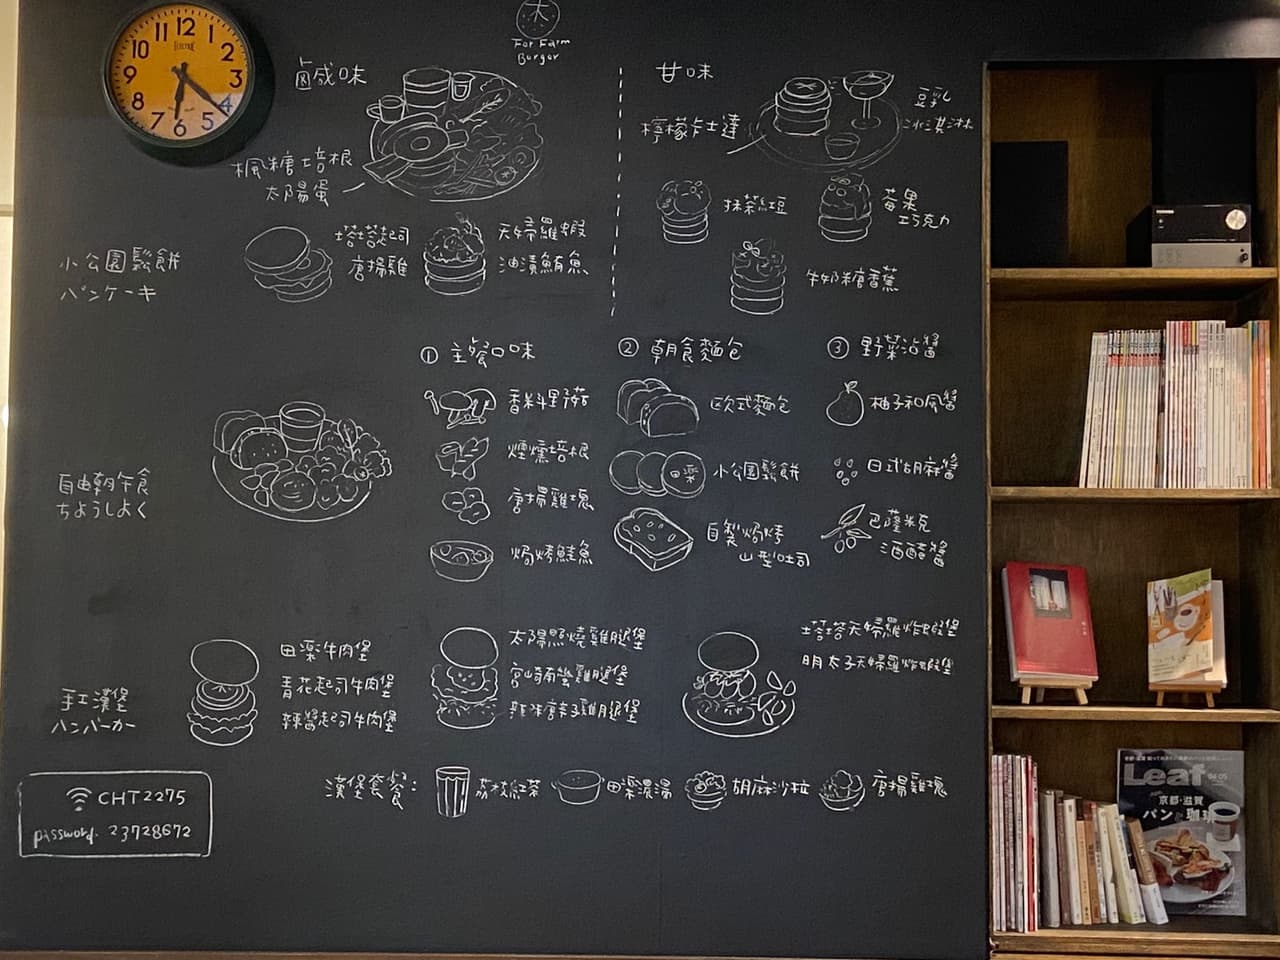 For Farm
Burger
12 1 2 3 4 5 6 7 8 9 10 11
鹹味
楓糖培根
太陽蛋
塔塔起司
唐揚雞
天婦羅蝦
油漬鮪魚
小公園鬆餅
パンケーキ
甘味
檸檬卡士達
豆乳
冰淇淋
抹茶紅豆
莓果
巧克力
牛奶糖香蕉
自由朝午食
ちょうしょく
① 主餐口味
香料野菇
煙燻培根
唐揚雞塊
焗烤鮭魚
② 朝食麵包
歐式麵包
小公園鬆餅
自製焗烤
山型吐司
③ 野菜沾醬
柚子和風醬
日式胡麻醬
巴薩米克
酒醋醬
手工漢堡
ハンバーガー
田樂牛肉堡
青花起司牛肉堡
辣醬起司牛肉堡
太陽照燒雞腿堡
宮崎南蠻雞腿堡
辣味唐辛子雞腿堡
塔塔天婦羅炸蝦堡
明太子天婦羅炸蝦堡
漢堡套餐:
荔枝紅茶
田樂濃湯
胡麻沙拉
唐揚雞塊
CHT2275
password. 23728672
Leaf
京都・滋賀
パンと珈琲